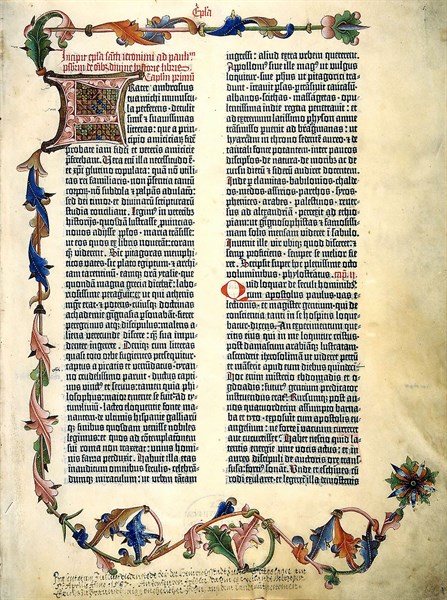 Epl'a
Incipit epl'a sancti iheronimi ad pauli=
num p̄sbiterum de oībus divine historie libris.
Capl'm primū
Frater ambrosius
tua michi munuscu=
la p̄ferens·detulit
sil' et suavissimas
litteras: que a prin=
cipio amiciciaȝ·fidē
probate iam fidei et veteris amicicie
p̄ferebant. Vera enī illa necessitudo ē·
et xp̄i glutino copulata: quā nō utili=
tas rei familiaris·nō p̄sentia tantū
corporū·nō subdola et palpās adulatō·
sed dei timor·et divinaȝ scripturarū
studia conciliant. Legim9 in veterib9
historijs·quosdā lustrasse puīncias·
novos adijsse pl'os·maria trāsisse:
ut eos quos ex libris noverāt: coram
q̇ viderent. Sic pitagoras memphi=
ticos vates·sic plato egiptum·et archi=
tam tarentinū·eamq; orā ytalie·que
quondā magna grecia dicebat': labo=
riosissime peragravit: ut qui athenis
mgr̄ erat·et potens·cuiusq; doctrinas
achademie gignasia p̄sonabāt·fieret
peregrinus atq; discipulus: malens a=
liena verecunde discere: q̄ sua impu=
dent' ingerere. Deniq; cum litteras
quasi toto orbe fugientes persequitur·
captus a piratis et venūdatus·tyran=
no crudelissimo paruit·ductus capti=
vus vinct9 et servus: tamen quia phi=
losophus·maior emente se fuit. Ad ty=
tumlīviū·lacteo eloquentie fonte ma=
nantem·de ultimis hispanie galliarūq;
finibus quosdam venisse nobiles
legimus: et quos ad cōtemplationem
sui roma non traxerat: unius homi=
nis fama perduxit. Habuit illa etas
inauditum omnibus seculis·celebrā=
dumq; miraculum: ut urbem tantam
ingressi: aliud extra urbem quererent.
Apollonius sive ille mag9 ut vulgus
loquitur·sive ph'us ut pitagorici tra=
dunt·intravit p̄sas·p̄transivit caucasū·
albanos·scithas·massagetas·opu=
lentissima indie regna penetravit: et
ad extremum latissimo physon amne
trāsmisso puenit ad bragmanas: ut
hyarcam in throno sedentē aureo·et de
tantali fonte potantem·inter paucos
discipl'os·de natura·de moribs ac de
cursu dierū et siderū audiret docentem.
Inde p elamitas·babilonios·chalde=
os·medos·assirios·parthos·syros·
phenices·arabes·palestinos·rever=
sus ad alexandriā·perrexit ad ethio=
piam: ut gignosophistas·et famosissi=
mam solis mensam videret ī sabulo.
Invenit ille vir ubiq; quod disceret: et
semp proficiens·semper se melior fie=
ret. Scripsit super hoc plenissime octo
voluminibus·phylostratus. cap̄. ij.
Quid loquar de seculi hominib9?
cum apostolus paulus·vas e=
lectionis·et magister gentiū·qui de
conscientia tanti in se hospitis loque=
batur·dicens. An experimentum que=
ritis eius qui in me loquitur cristus·
post damascum arabiāq; lustratam·
ascenderit iherosolimā ut videret petrū
et māserit apud eum diebus quindeci.
Hoc enim misterio ebdomadis et o=
gdoadis: futur9 gentium predicator
instruendus erat. Rursumq; post an=
nos quatuordecim assumpto barna=
ba et tyto·exposuit cum apostolis eu=
angelium: ne forte ī vacuum curreret
aut cucurrisset. Habet nescio quid la=
tentis energie vive vocis actus: et in
aures discipuli de auctoris ore trans=
fusa: forti9 sonat. Unde et eschines cū
rodi exularet·et legeret' illa demostenis